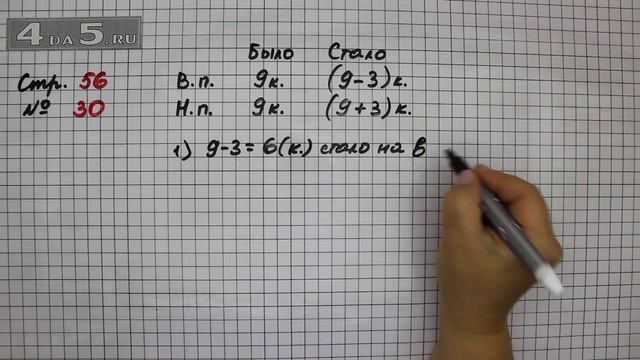 4 DA 5.RU
Было Стало
Стр. 56 В.п. 9к. (9-3)к.
№ 30 Н.п. 9к. (9+3)к.
1) 9-3=6(к.) стало на в